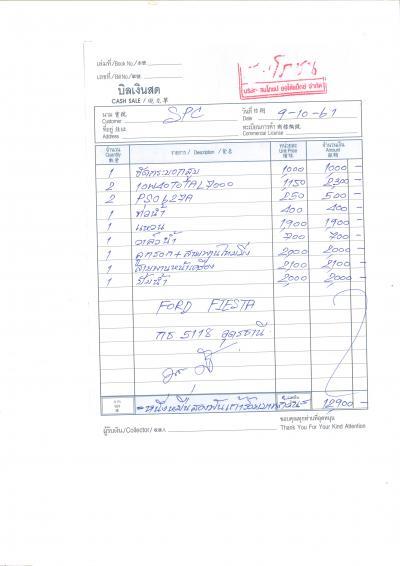 เล่มที่/Book No./本號
เลขที่/Bill No./單號
บิลเงินสด
CASH SALE / 現交單
นาม 寶號 Customer SPC วันที่ 日期 Date 9-10-61
ที่อยู่ 住址 Address ทะเบียนการค้า 商標執號 Commercial License
จำนวน Quantity 數量 รายการ / Description / 貨名 หน่วยละ Unit Price 價銀 จำนวนเงิน Amount 銀碼
1 1000 1000 -
2 10W40 TOTAL 7000 1150 2300 -
2 PSO 250 500 -
1 ท่อน้ำ 400 400 -
1 แหวน 1900 1900 -
1 วาล์วน้ำ 700 700 -
1 ลูกรอก + สายพานไทม์มิ่ง 2000 2000 -
1 สายพานหน้าเครื่อง 2100 2100 -
1 ปั๊มน้ำ 2000 2000 -
FORD FIESTA
กธ 5118 อุดรธานี
รวมเงิน 12900 -
ผู้รับเงิน/Collector/收款人 ขอบคุณทุกท่านที่อุดหนุน
Thank You For Your Kind Attention